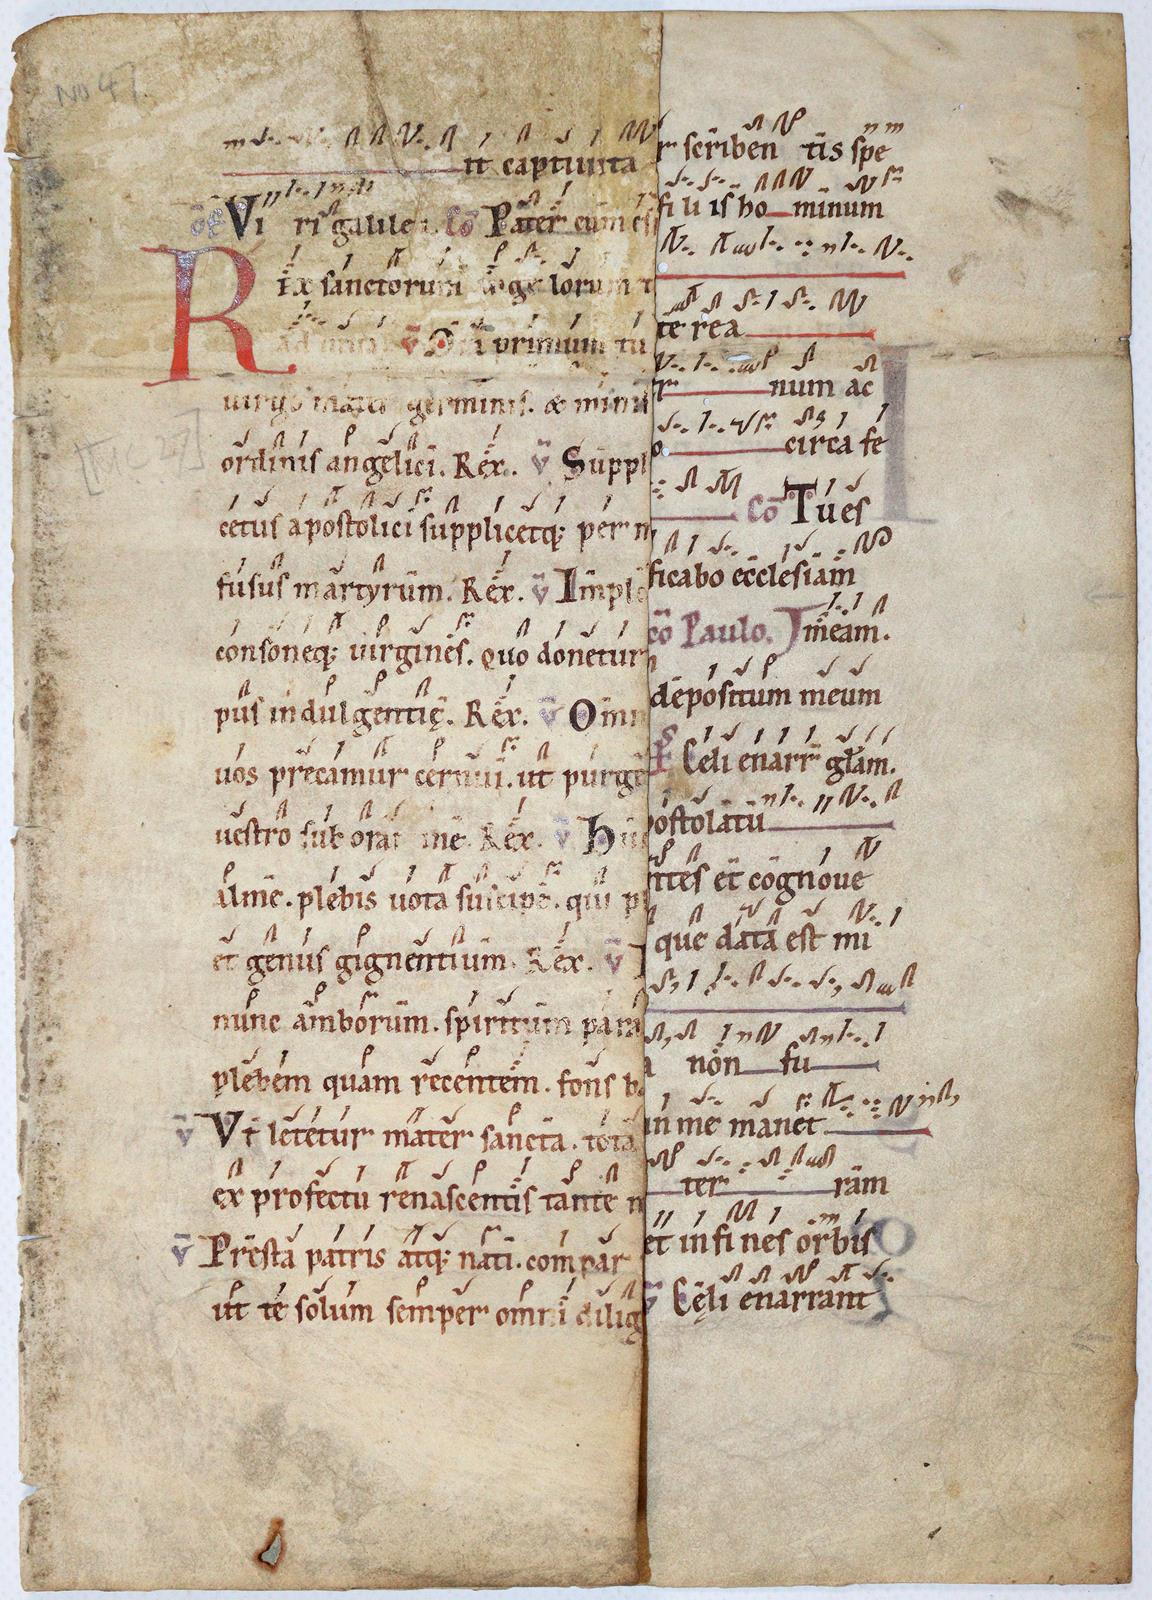 No 47.
it captivita
Of Vi ri galilei. Cō Pater cum es
Rex sanctorum angelorum t
adiuva. v̄ Ora primum tu
virgo mater germinis. & mini
ordinis angelici. Rex. v̄ Suppl
cetus apostolici supplicetq; per m
fusus martyrum. Rex. v̄ Imple
consoneq; virgines. quo donetur
pus indulgentię. Rex. v̄ Omn
vos precamur cernui. ut purge
vestro sub orat mē. Rex. v̄ Hu
alme. plebis vota suscipe. qui p
et genus gignentium. Rex. v̄
nunc amborum. spiritum para
plebem quam recentem. fons b
v̄ Ut letetur mater sancta. tota
ex profectu renascentis tante m
v̄ Presta patris atq; nati. compar
ut te solum semper omni dilig
r scriben tis spe
fi li is ho minum
te rea
r num ac
o circa fe
Cō Tu es
ficabo ecclesiam
cō Paulo. meam.
depositum meum
Ps Celi enarr glām.
postolatū
ntes et cognove
que data est mi
a non fu
in me manet
ter ram
et in fi nes orbis
v̄ Cęli enarrant